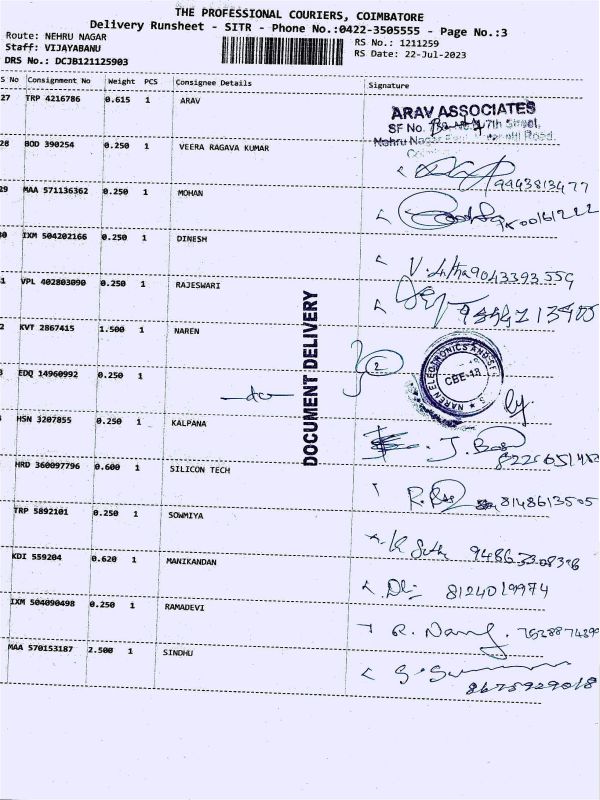 THE PROFESSIONAL COURIERS, COIMBATORE
Delivery Runsheet - SITR - Phone No.:0422-3505555 - Page No.:3
Route: NEHRU NAGAR
Staff: VIJAYABANU
DRS No.: DCJB121125903
RS No.: 1211259
RS Date: 22-Jul-2023
S No Consignment No Weight PCS Consignee Details Signature
27 TRP 4216786 0.615 1 ARAV
ARAV ASSOCIATES
SF No. 7th Street,
Nehru Nagar Road,
28 BOD 390254 0.250 1 VEERA RAGAVA KUMAR
9943813477
29 MAA 571136362 0.250 1 MOHAN
30 IXM 504202166 0.250 1 DINESH
9043393559
1 VPL 402803090 0.250 1 RAJESWARI
2 KVT 2867415 1.500 1 NAREN
2
NAREN ELECTRONICS AND
CBE-18
3 EDQ 14960992 0.250 1
-do-
HSN 3207855 0.250 1 KALPANA
J.
HRD 360097796 0.600 1 SILICON TECH
8148613505
TRP 5892101 0.250 1 SOWMIYA
KDI 559204 0.620 1 MANIKANDAN
8124019974
IXM 504090498 0.250 1 RAMADEVI
R.
MAA 570153187 2.500 1 SINDHU
8675929018
DOCUMENT DELIVERY